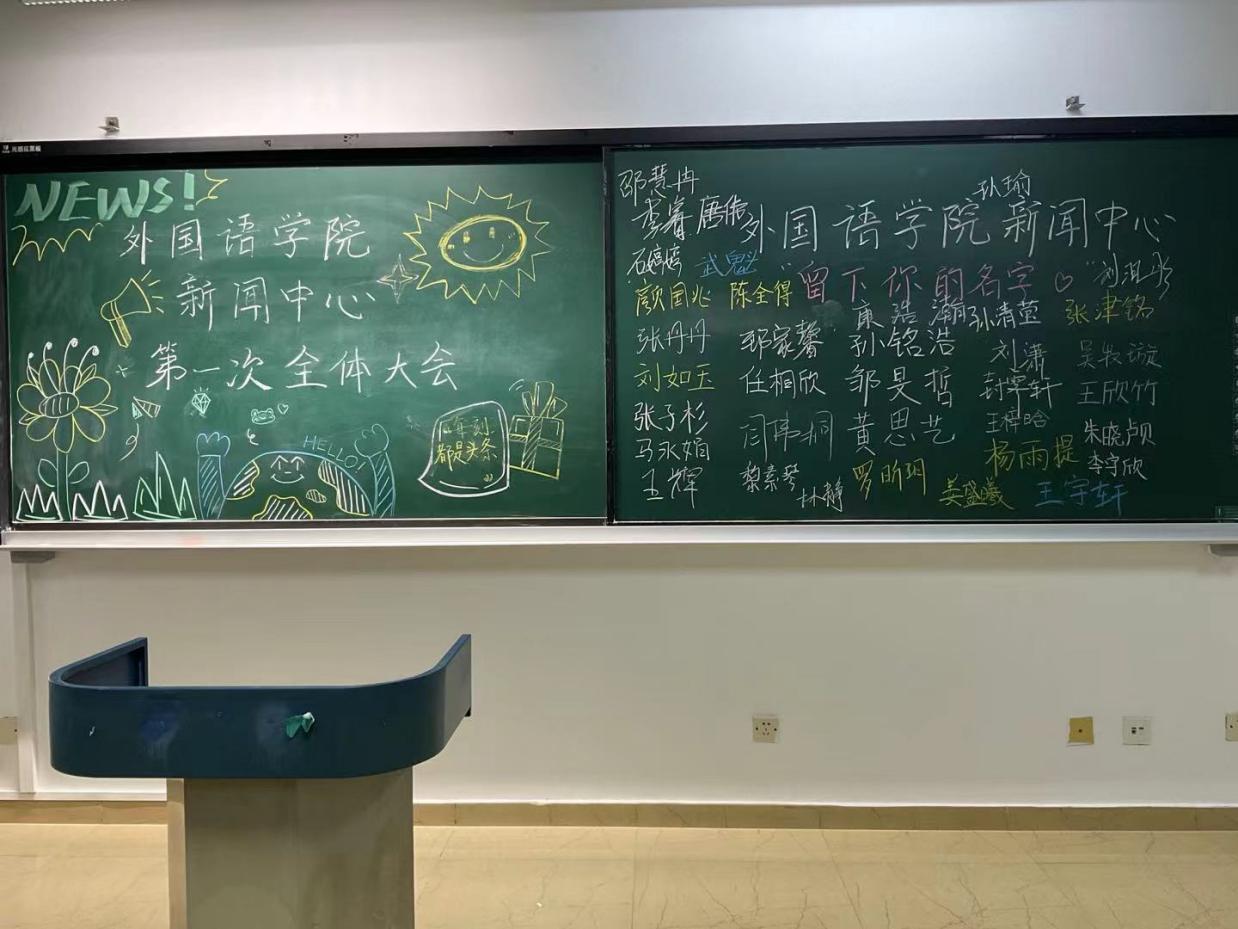 NEWS!
外国语学院
新闻中心
第一次全体大会
HELLO!
每年一刻
都是头条
邵慧冉
孙瑜
李睿 唐伟
外国语学院新闻中心
石婷婷 武魁
"留下你的名字♡"
颜国兆 陈全得
康浩瀚
孙清萱
张津铭
张丹丹 郅家馨 孙铭浩
刘潇
刘如玉 任桐欣 邹旻哲
封寧轩 王欣竹
张子杉
闫伟桐 黄思艺
王梓晗
朱晓贞
马永娟
杨雨提
李宇欣
王辉 黎素琴 林静 罗昕玥
英盛羲 王宇轩